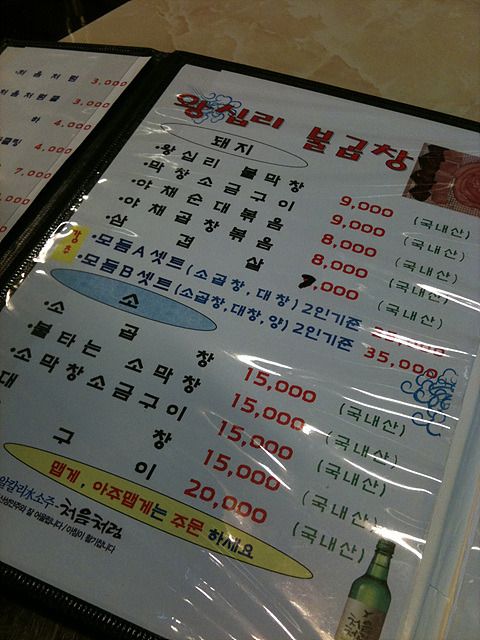 처음처럼 3,000
처음처럼쿨 3,000
4,000
4,000
7,000
왕십리 불곱창
돼지
·왕십리 불막창 9,000 (국내산)
막창소금구이 9,000 (국내산)
야채순대볶음 8,000 (국내산)
야채곱창볶음 8,000 (국내산)
삼겹살 ,000 (국내산)
강추
·모듬A세트(소곱창, 대창) 2인기준
·모듬B세트(소곱창,대창,양) 2인기준 35,000
소
·소곱창 15,000 (국내산)
·불타는 소막창 15,000 (국내산)
·소막창소금구이 15,000 (국내산)
대창 15,000 (국내산)
구이 20,000 (국내산)
맵게, 아주맵게는 주문 하세요
알칼리水소주-처음처럼